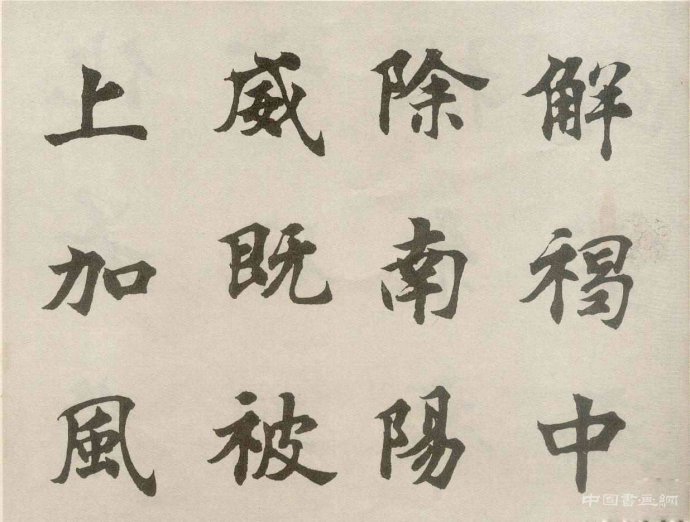 解褐中
除南陽
威既被
上加風
中国書画網